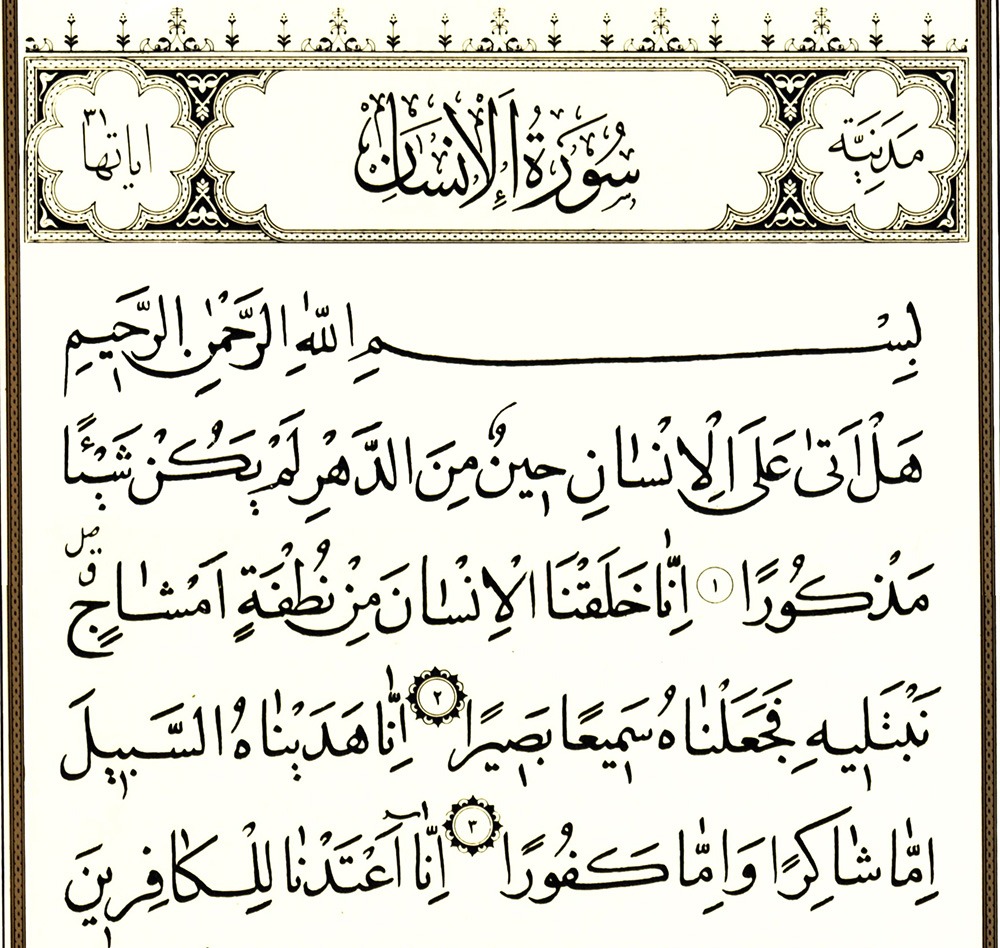 مَدَنِيَّة سُورَةُ اَلْاِنْسَانِ اياتها ٣١
بِسْمِ اللّٰهِ الرَّحْمٰنِ الرَّحِيمِ
هَلْ اَتٰى عَلَى الْاِنْسَانِ حِينٌ مِنَ الدَّهْرِ لَمْ يَكُنْ شَيْئًا
مَذْكُورًا ١ اِنَّا خَلَقْنَا الْاِنْسَانَ مِنْ نُطْفَةٍ اَمْشَاجٍۗ
نَبْتَلِيهِ فَجَعَلْنَاهُ سَمِيعًا بَصِيرًا ٢ اِنَّا هَدَيْنَاهُ السَّبِيلَ
اِمَّا شَاكِرًا وَاِمَّا كَفُورًا ٣ اِنَّٓا اَعْتَدْنَا لِلْكَافِرِينَ